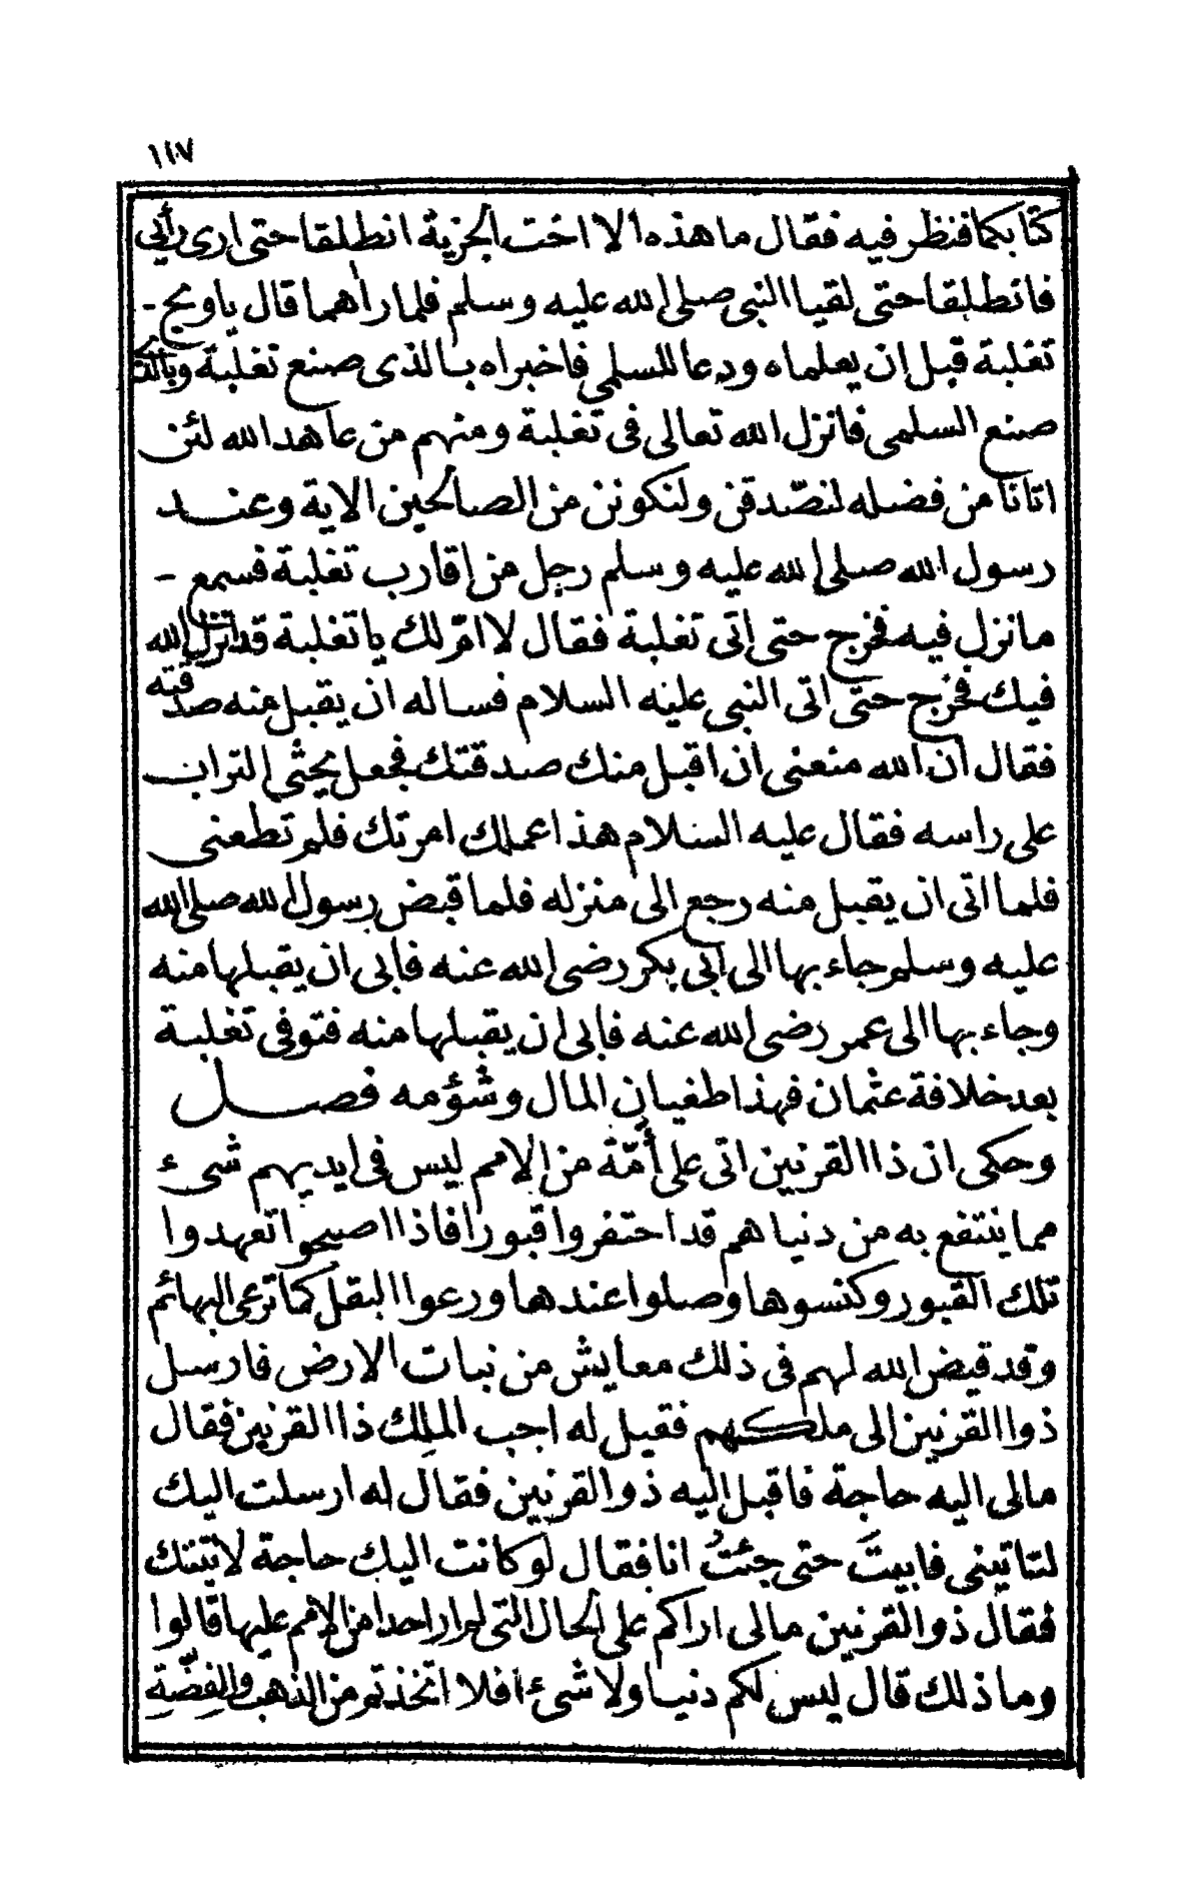 ١١٧
كتابكما فنظر فيه فقال ما هذه الا اخت الجزية انطلقا حتى ارى رأيى
فانطلقا حتى لقيا النبى صلى الله عليه وسلم فلما راهما قال يا ويح -
تغلبة قبل ان يعلماه ودعا للسلمى فاخبراه بالذى صنع تغلبة وبالذى
صنع السلمى فانزل الله تعالى فى تغلبة ومنهم من عاهد الله لئن
اتانا من فضله لنصّدقن ولنكونن من الصالحين الاية وعند
رسول الله صلى الله عليه وسلم رجل من اقارب تغلبة فسمع -
ما نزل فيه فخرج حتى اتى تغلبة فقال لا امّ لك يا تغلبة قد انزل الله
فيك فخرج حتى اتى النبى عليه السلام فساله ان يقبل منه صدقته
فقال ان الله منعنى ان اقبل منك صدقتك فجعل يحثى التراب
على راسه فقال عليه السلام هذا عملك امرتك فلم تطعنى
فلما اتى ان يقبل منه رجع الى منزله فلما قبض رسول الله صلى الله
عليه وسلم جاء بها الى ابى بكر رضى الله عنه فابى ان يقبلها منه
وجاء بها الى عمر رضى الله عنه فابى ان يقبلها منه فتوفى تغلبة
بعد خلافة عثمان فهذا طغيان المال وشؤمه فصل
وحكى ان ذا القرنين اتى على أمّة من الامم ليس فى ايديهم شىء
مما ينتفع به من دنياهم قد احتفروا قبورا فاذا اصبحوا تعهدوا
تلك القبور وكنسوها وصلوا عندها ورعوا البقل كما ترعى البهائم
وقد قيض الله لهم فى ذلك معايش من نبات الارض فارسل
ذوا القرنين الى ملكهم فقيل له اجب الملِك ذا القرنين فقال
مالى اليه حاجة فاقبل اليه ذو القرنين فقال له ارسلت اليك
لتاتينى فابيتَ حتى جئتُ انا فقال لو كانت اليك حاجة لاتيتك
فقال ذو القرنين مالى اراكم على الحال التى لم ار احدا من الامم عليها قالوا
وما ذلك قال ليس لكم دنيا ولا شىء افلا اتخذتم من الذهب والفِضّةِ